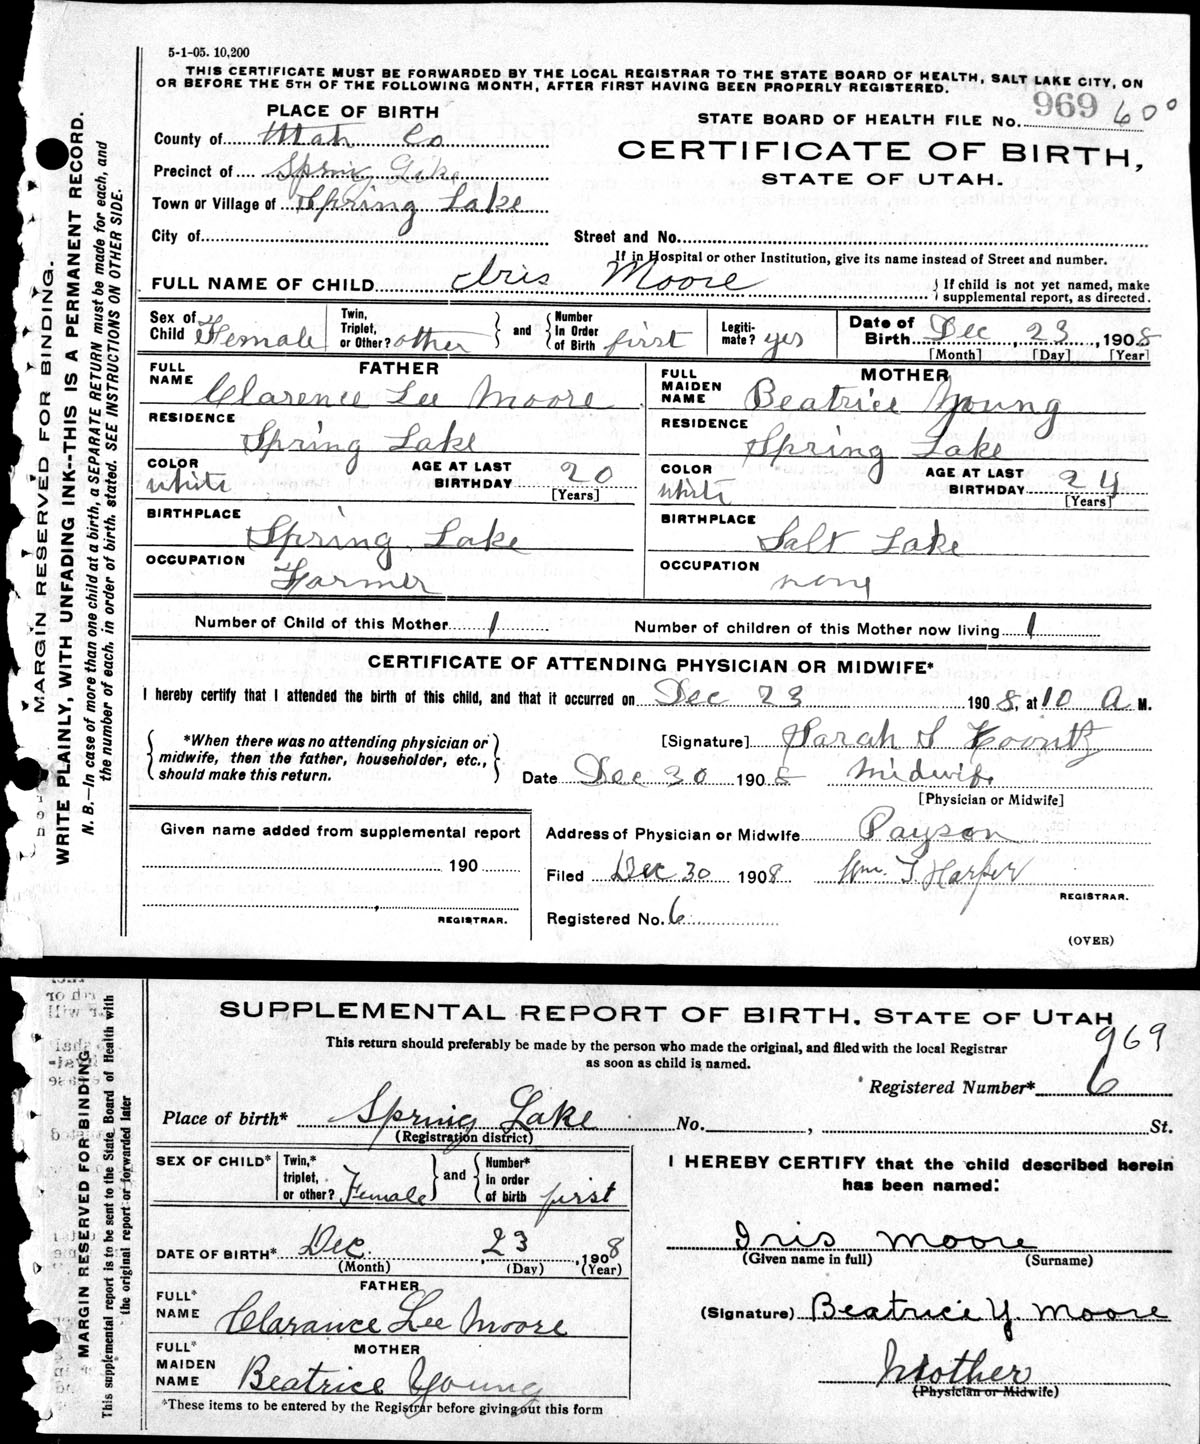 5-1-05. 10,200
THIS CERTIFICATE MUST BE FORWARDED BY THE LOCAL REGISTRAR TO THE STATE BOARD OF HEALTH, SALT LAKE CITY, ON
OR BEFORE THE 5TH OF THE FOLLOWING MONTH, AFTER FIRST HAVING BEEN PROPERLY REGISTERED.
PLACE OF BIRTH
STATE BOARD OF HEALTH FILE No. 969 600
County of Utah Co
CERTIFICATE OF BIRTH,
STATE OF UTAH.
Precinct of Spring Lake
Town or Village of Spring Lake
City of
Street and No.
If in Hospital or other Institution, give its name instead of Street and number.
FULL NAME OF CHILD Iris Moore
If child is not yet named, make
supplemental report, as directed.
Sex of Child Female
Twin, Triplet, or Other? other
and
Number In Order of Birth first
Legiti-mate? yes
Date of Birth Dec, 23, 1908
[Month] [Day] [Year]
FATHER
FULL NAME Clarence Lee Moore
RESIDENCE
Spring Lake
COLOR white
AGE AT LAST BIRTHDAY 20
[Years]
BIRTHPLACE
Spring Lake
OCCUPATION
Farmer
MOTHER
FULL MAIDEN NAME Beatrice Young
RESIDENCE
Spring Lake
COLOR white
AGE AT LAST BIRTHDAY 24
[Years]
BIRTHPLACE
Salt Lake
OCCUPATION
none
Number of Child of this Mother 1
Number of children of this Mother now living 1
CERTIFICATE OF ATTENDING PHYSICIAN OR MIDWIFE*
I hereby certify that I attended the birth of this child, and that it occurred on Dec 23 1908, at 10 A M.
*When there was no attending physician or
midwife, then the father, householder, etc.,
should make this return.
[Signature] Sarah S Koontz
Date Dec 30 1908 Midwife
[Physician or Midwife]
Given name added from supplemental report
190
REGISTRAR.
Address of Physician or Midwife Payson
Filed Dec 30 1908 Wm. T Harper
REGISTRAR.
Registered No. 6
(OVER)
MARGIN RESERVED FOR BINDING.
WRITE PLAINLY, WITH UNFADING INK--THIS IS A PERMANENT RECORD.
N. B.—In case of more than one child at a birth, a SEPARATE RETURN must be made for each, and
the number of each, in order of birth, stated. SEE INSTRUCTIONS ON OTHER SIDE.
SUPPLEMENTAL REPORT OF BIRTH, STATE OF UTAH
969
This return should preferably be made by the person who made the original, and filed with the local Registrar
as soon as child is named.
Registered Number* 6
Place of birth* Spring Lake No. , St.
(Registration district)
SEX OF CHILD*
Twin,* triplet, or other? Female
and
Number* in order of birth first
DATE OF BIRTH* Dec. 23, 1908
(Month) (Day) (Year)
FATHER
FULL* NAME Clarance Lee Moore
MOTHER
FULL* MAIDEN NAME Beatrice Young
*These items to be entered by the Registrar before giving out this form
I HEREBY CERTIFY that the child described herein
has been named:
Iris Moore
(Given name in full) (Surname)
(Signature) Beatrice Y. Moore
Mother
(Physician or Midwife)
MARGIN RESERVED FOR BINDING
This supplemental report is to be sent to the State Board of Health with
the original report or forwarded later